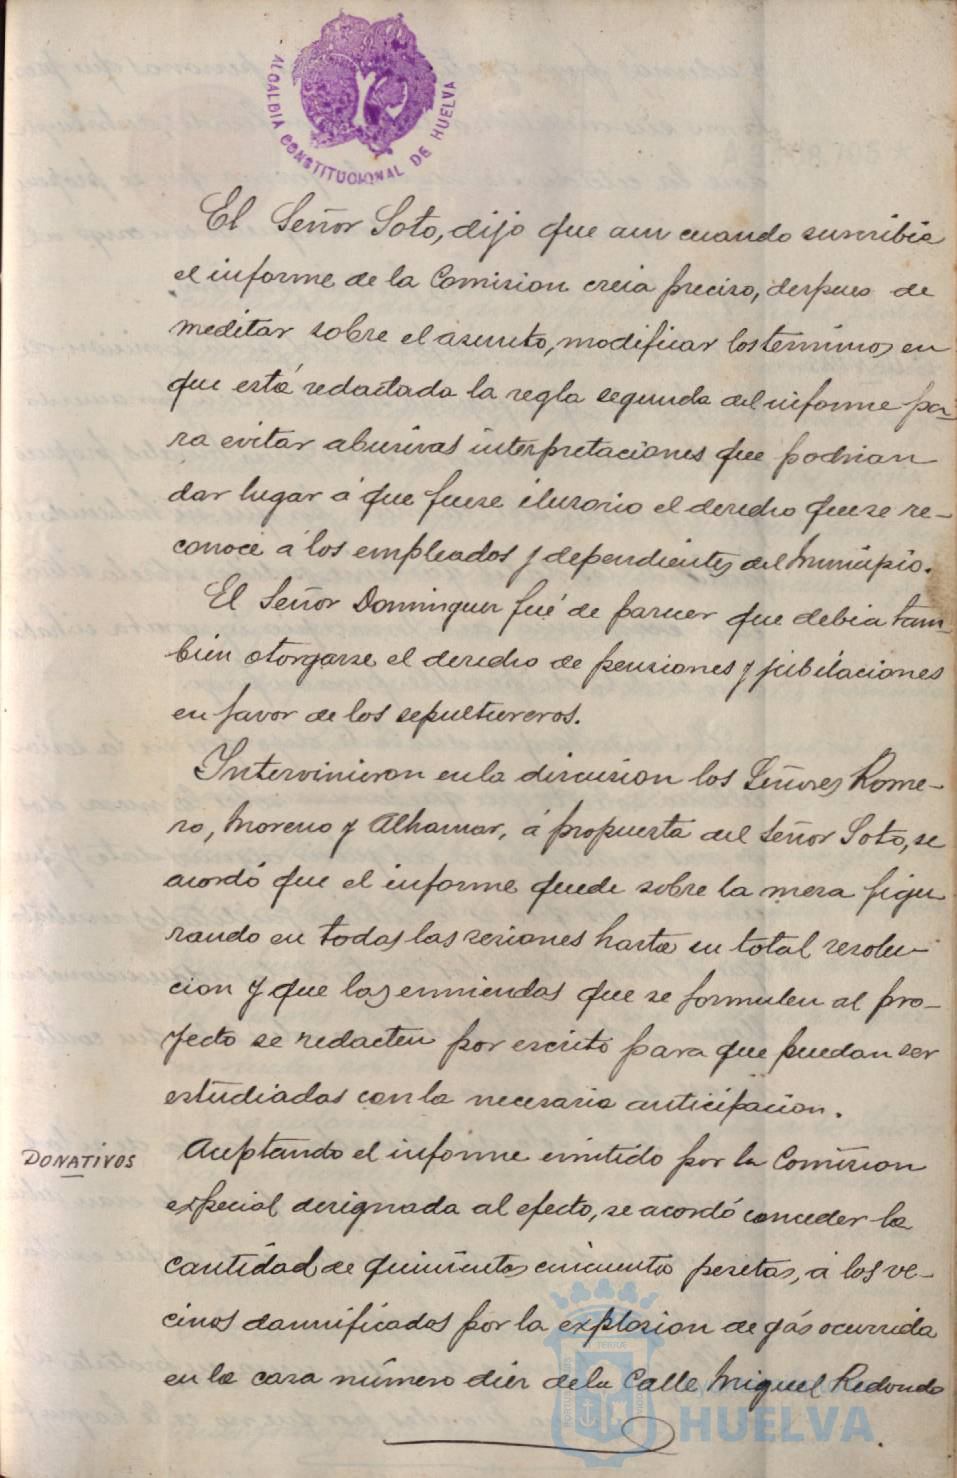 ALCALDIA CONSTITUCIONAL DE HUELVA
El Señor Soto, dijo que aun cuando suscribia
el informe de la Comision creia preciso, despues de
meditar sobre el asunto, modificar los terminos en
que está redactada la regla segunda del informe pa-
ra evitar abusivas interpretaciones que podrian
dar lugar á que fuese ilusorio el derecho que se re-
conoce á los empleados y dependientes del Municipio.
El Señor Dominguez fué de parecer que debia tam-
bien otorgarse el derecho de pensiones y jubilaciones
en favor de los sepultureros.
Intervinieron en la discusion los Señores Rome-
ro, Moreno y Alhamar, á propuesta del Señor Soto, se
acordó que el informe quede sobre la mesa figu
rando en todas las sesiones hasta su total resolu-
cion y que las enmiendas que se formulen al pro-
yecto se redacten por escrito para que puedan ser
estudiadas con la necesaria anticipacion.
DONATIVOS
Aceptando el informe emitido por la Comision
especial designada al efecto, se acordó conceder la
cantidad de quinientas cincuenta pesetas, á los ve-
cinos damnificados por la explosion de gás ocurrida
en la casa número diez de la Calle Miguel Redondo
HUELVA